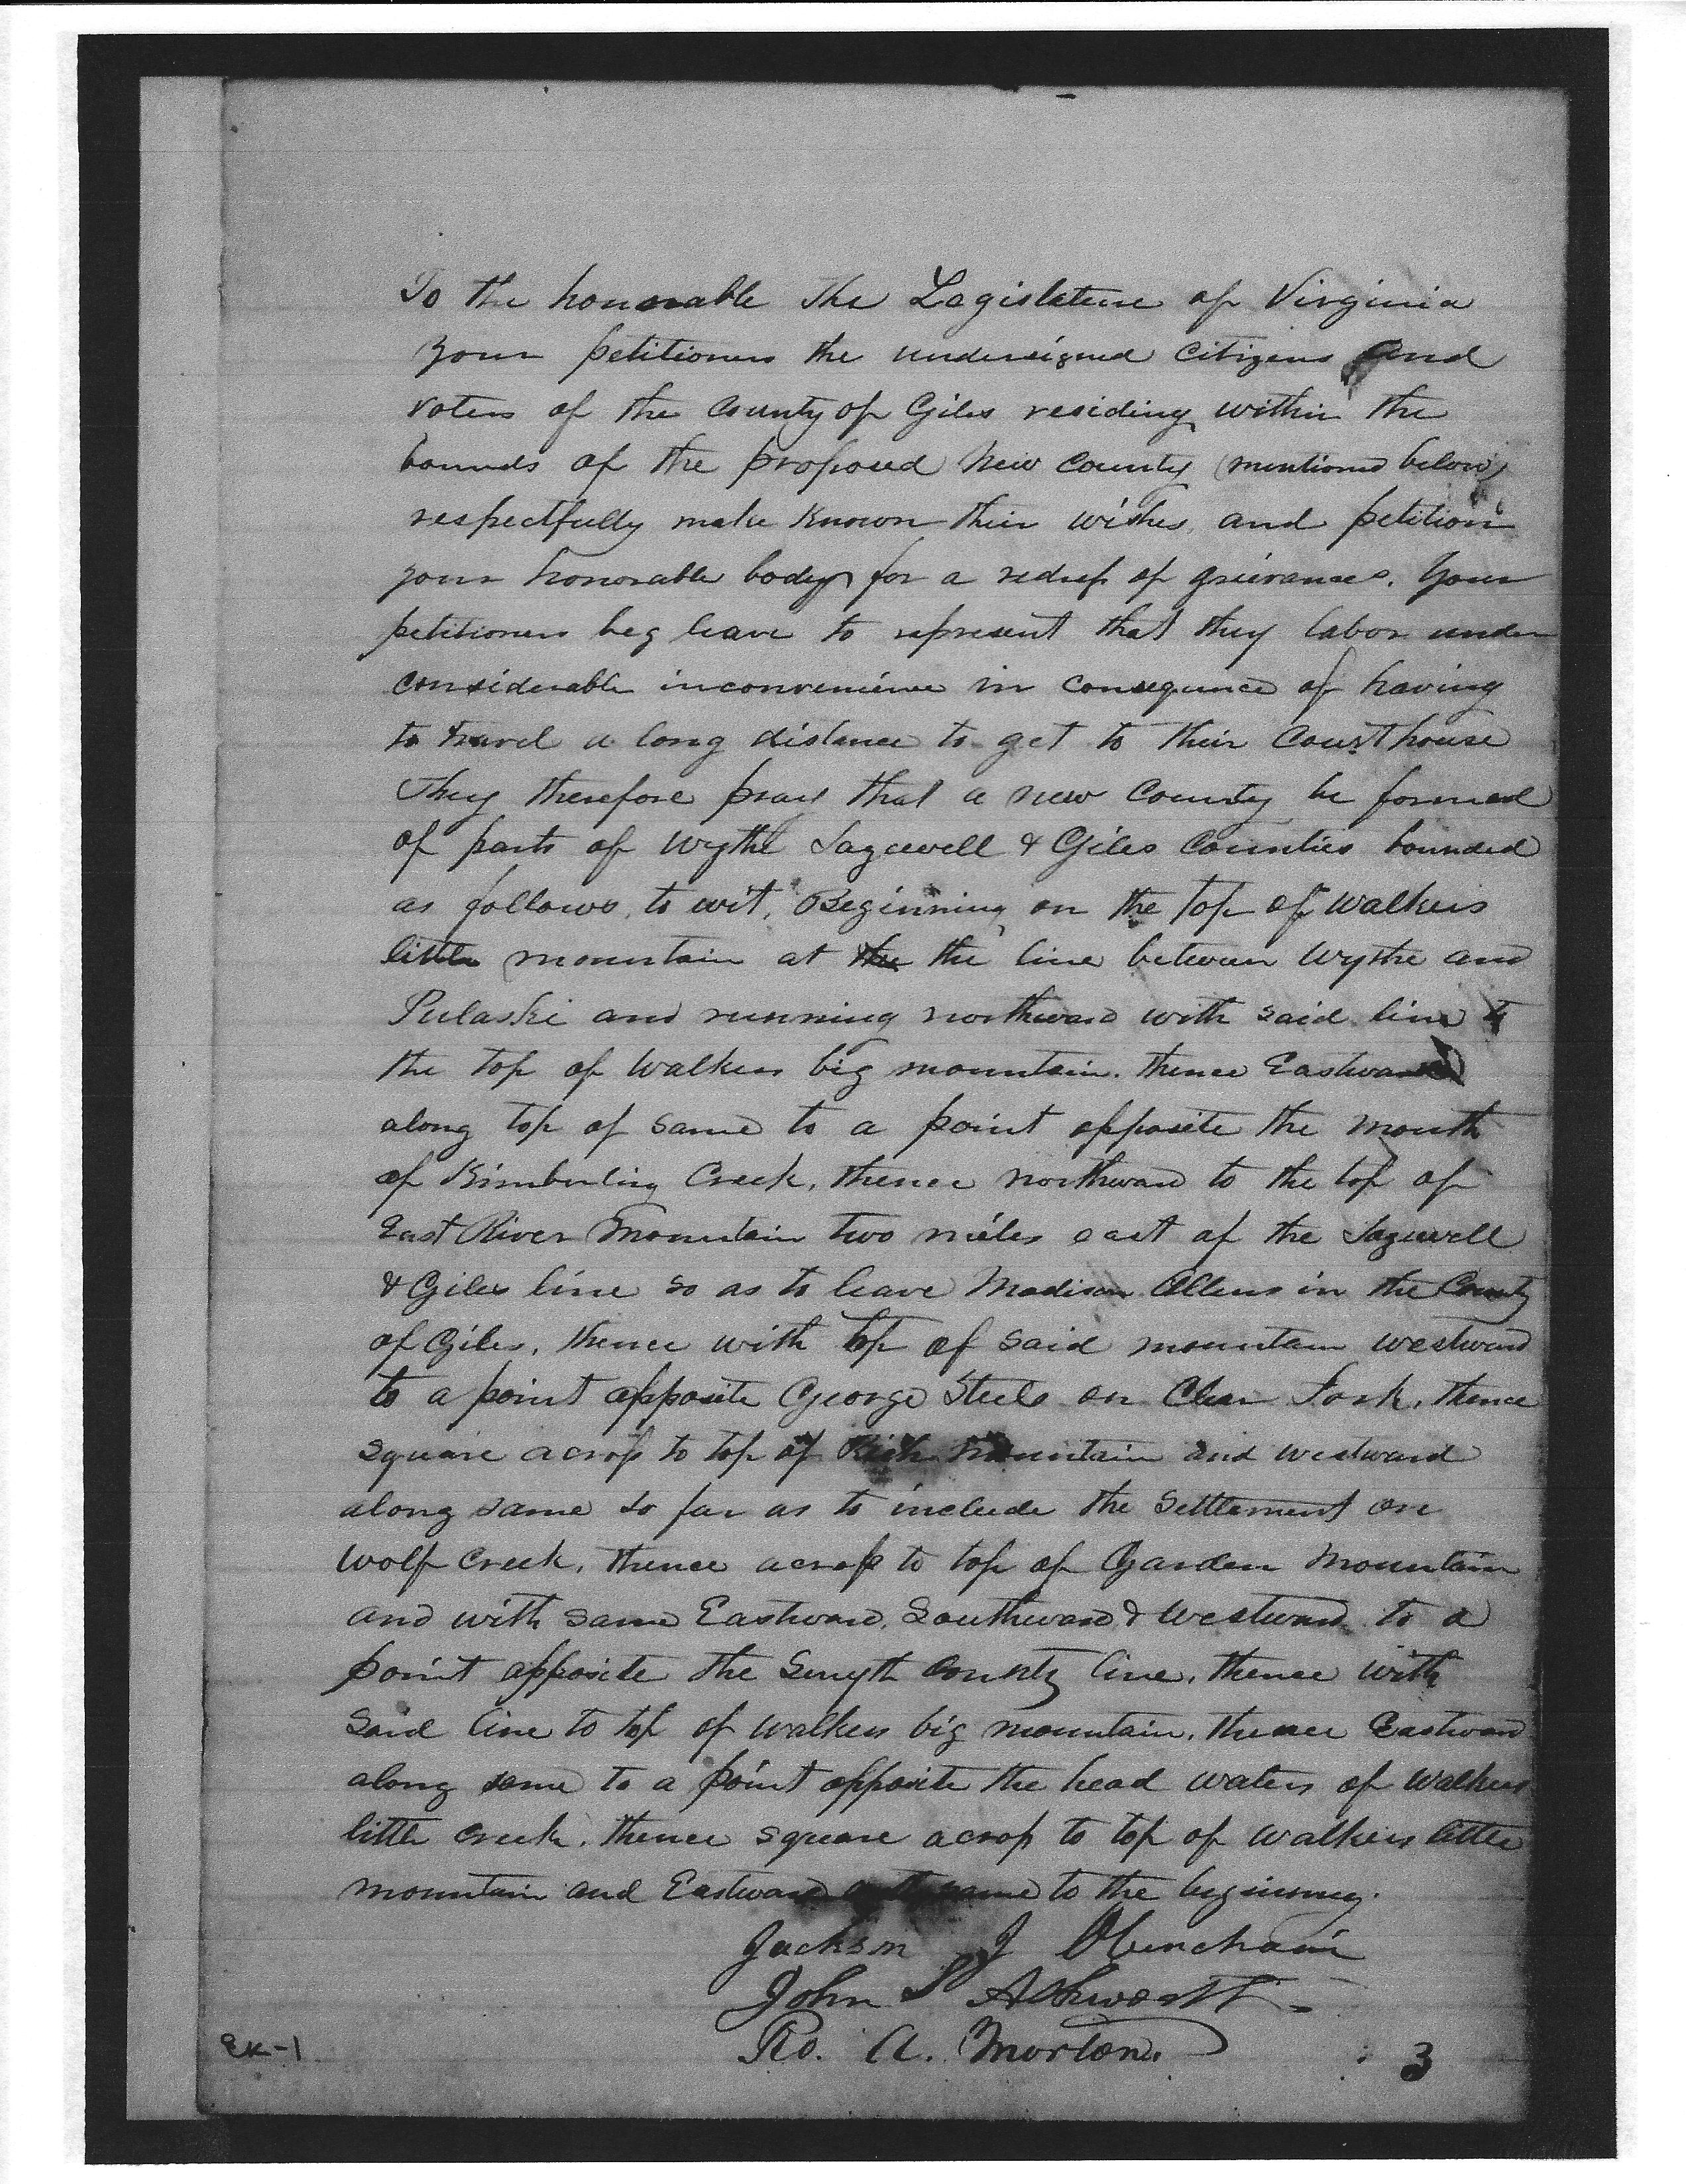 To the honorable the Legislature of Virginia
Your petitioners the undersigned citizens and
voters of the County of Giles residing within the
bounds of the proposed New County (mentioned below)
respectfully make known their wishes and petition
your honorable body for a redress of grievances. Your
petitioners beg leave to represent that they labor under
considerable inconvenience in consequence of having
to travel a long distance to get to their Courthouse
They therefore pray that a new County be formed
of parts of Wythe Tazewell & Giles Counties bounded
as follows, to wit, Beginning on the top of Walkers
little mountain at the the line between Wythe and
Pulaski and running northward with said line to
the top of Walkers big mountain. thence Eastward
along top of same to a point opposite the mouth
of Kimberling Creek, thence northward to the top of
East River Mountain two miles east of the Tazewell
& Giles line so as to leave Madison Allens in the County
of Giles, thence with top of said mountain westward
to a point opposite George Steels on Clear Fork, thence
square across to top of Rich mountain and westward
along same so far as to include the Settlement on
Wolf Creek, thence across to top of Garden Mountain
and with same Eastward, Southward & Westward to a
point opposite the Smyth County line, thence with
said line to top of Walkers big mountain, thence Eastward
along same to a point opposite the head waters of Walkers
little creek, thence square across to top of Walkers little
mountain and Eastward with same to the beginning.
Jackson J Obenchain
John S Ashworth
Ro. A. Morton
EK-1
3